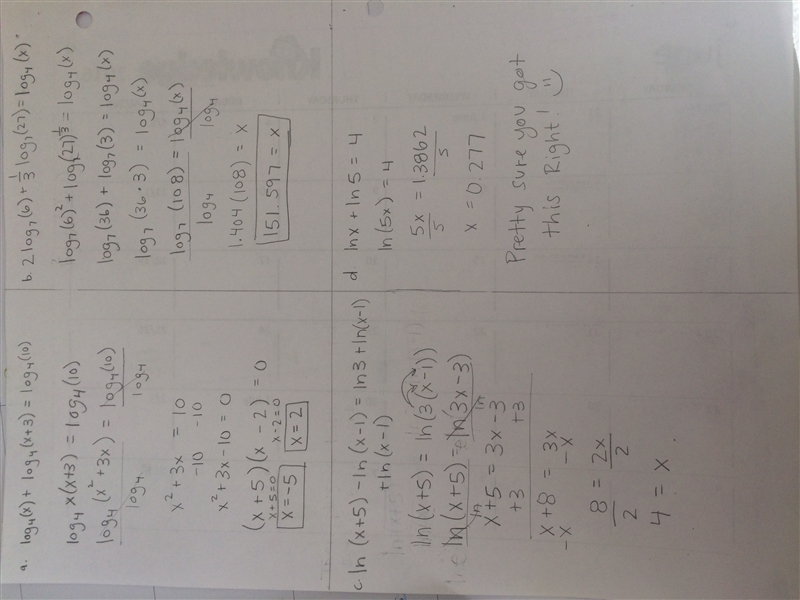 a. log₄(x) + log₄(x+3) = log₄(10)
log₄ x(x+3) = log₄(10)
log₄ (x² + 3x) = log₄(10)
log₄ log₄
x² + 3x = 10
-10 -10
x² + 3x - 10 = 0
(x + 5)(x - 2) = 0
x+5=0 x-2=0
x = -5 x = 2
b. 2 log₇(6) + 1/3 log₇(27) = log₄(x)
log₇(6)² + log₇(27)^1/3 = log₄(x)
log₇(36) + log₇(3) = log₄(x)
log₇(36 · 3) = log₄(x)
log₇(108) = log₄(x)
log₄ log₄
1.404(108) = x
151.597 = x
c. ln (x+5) - ln(x-1) = ln 3 + ln(x-1)
+ ln(x-1)
ln(x+5) = ln(3(x-1))
ln(x+5) = ln(3x-3)
ln ln
x+5 = 3x-3
+3 +3
x+8 = 3x
-x -x
8 = 2x
2 2
4 = x
d lnx + ln5 = 4
ln(5x) = 4
5x = 1.3862
5 5
x = 0.277
Pretty sure you got
this Right!